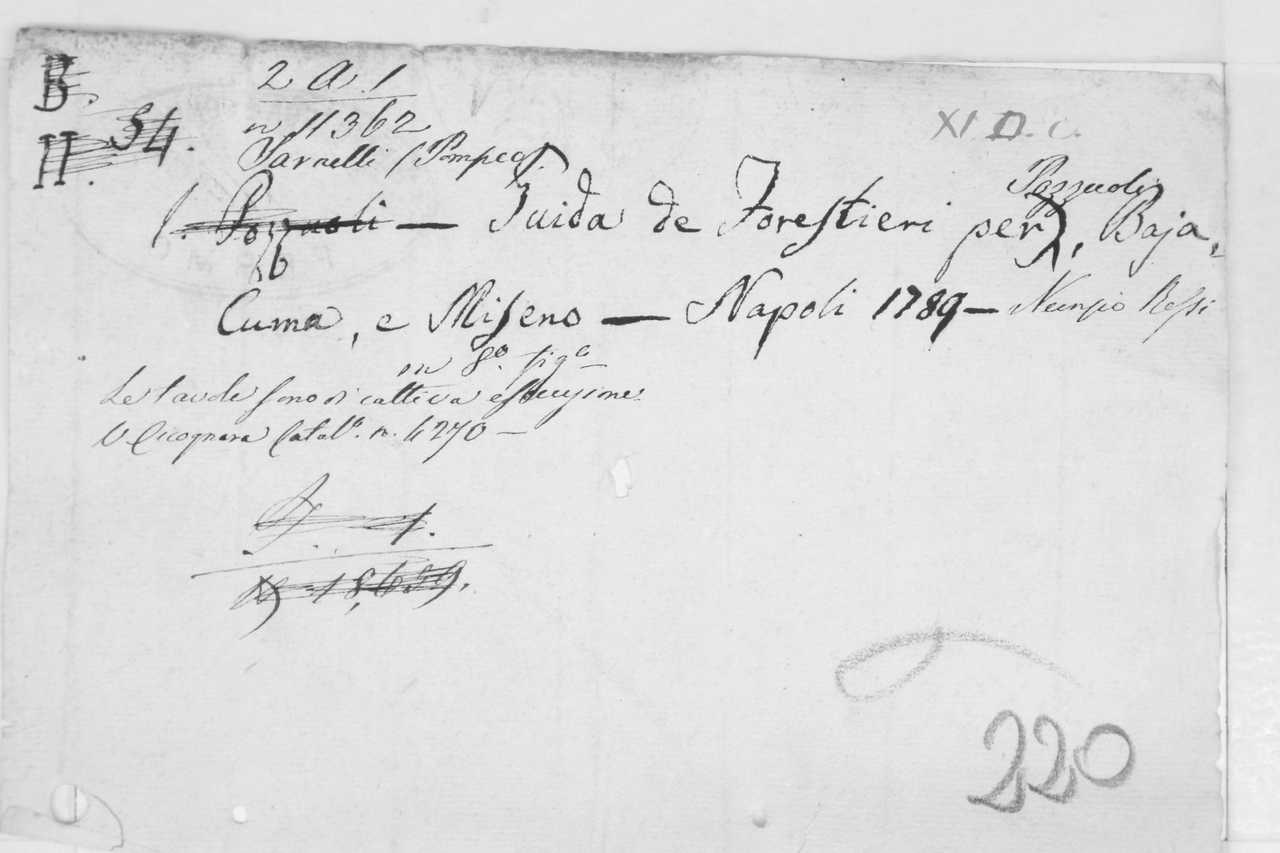 B.
II. 34.
2 A. 1
n 11362
XI D. c.
Sarnelli (Pompeo)
1. Pozzuoli — Guida de Forestieri per Pozzuoli, Baja,
Cuma, e Miseno — Napoli 1789 — Nunzio Rossi
in 8.º fig.e
Le tavole sono di cattiva essecuzione
V. Cicognara Catal.º n. 4270 —
1.
18,639.
220